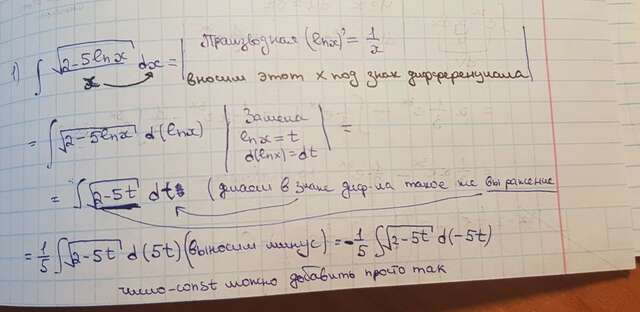 1) ∫ √(2-5lnx) / x dx = | Праизводная (lnx)' = 1/x
вносим этот x под знак дифференциала |
= ∫ √(2-5lnx) d(lnx) | Замена
lnx = t
d(lnx) = dt | =
= ∫ √(2-5t) dt (диаем в знаке диф-ла такое же выражение
= 1/5 ∫ √(2-5t) d(5t) (выносим минус) = -1/5 ∫ √(2-5t) d(-5t)
число-const можно добавить просто так